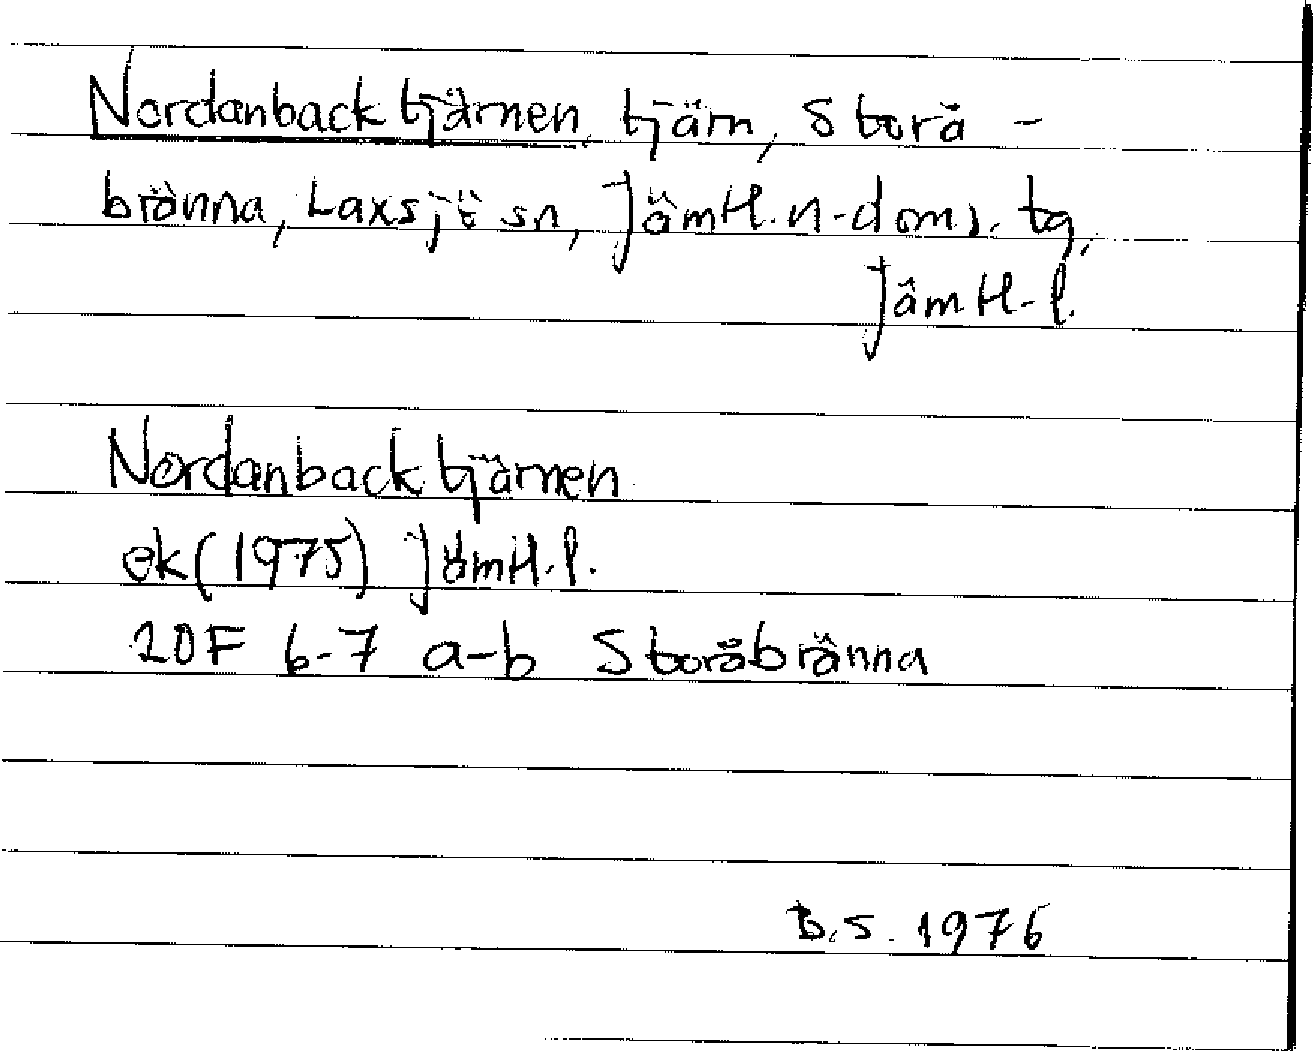 Nordanbacktjärnen, tjärn, Storå-
bränna, Laxsjö sn, Jämtl. n. doms. tg,
Jämtl. l.
Nordanbacktjärnen
ek (1975) Jämtl. l.
20F 6-7 a-b Storåbränna
B.S. 1976